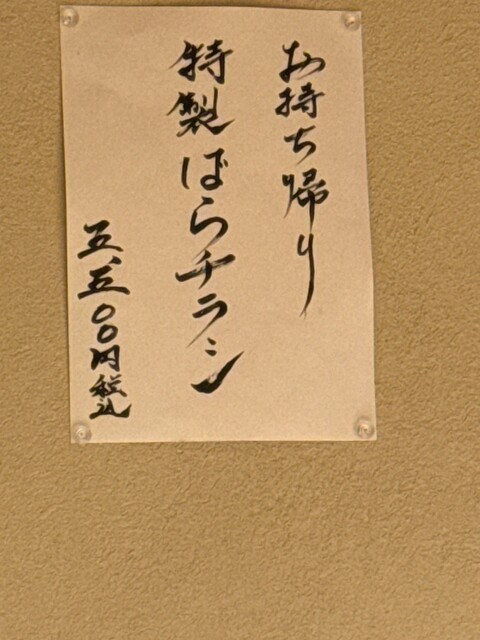 お持ち帰り
特製ばらチラシ
五、五〇〇円税込